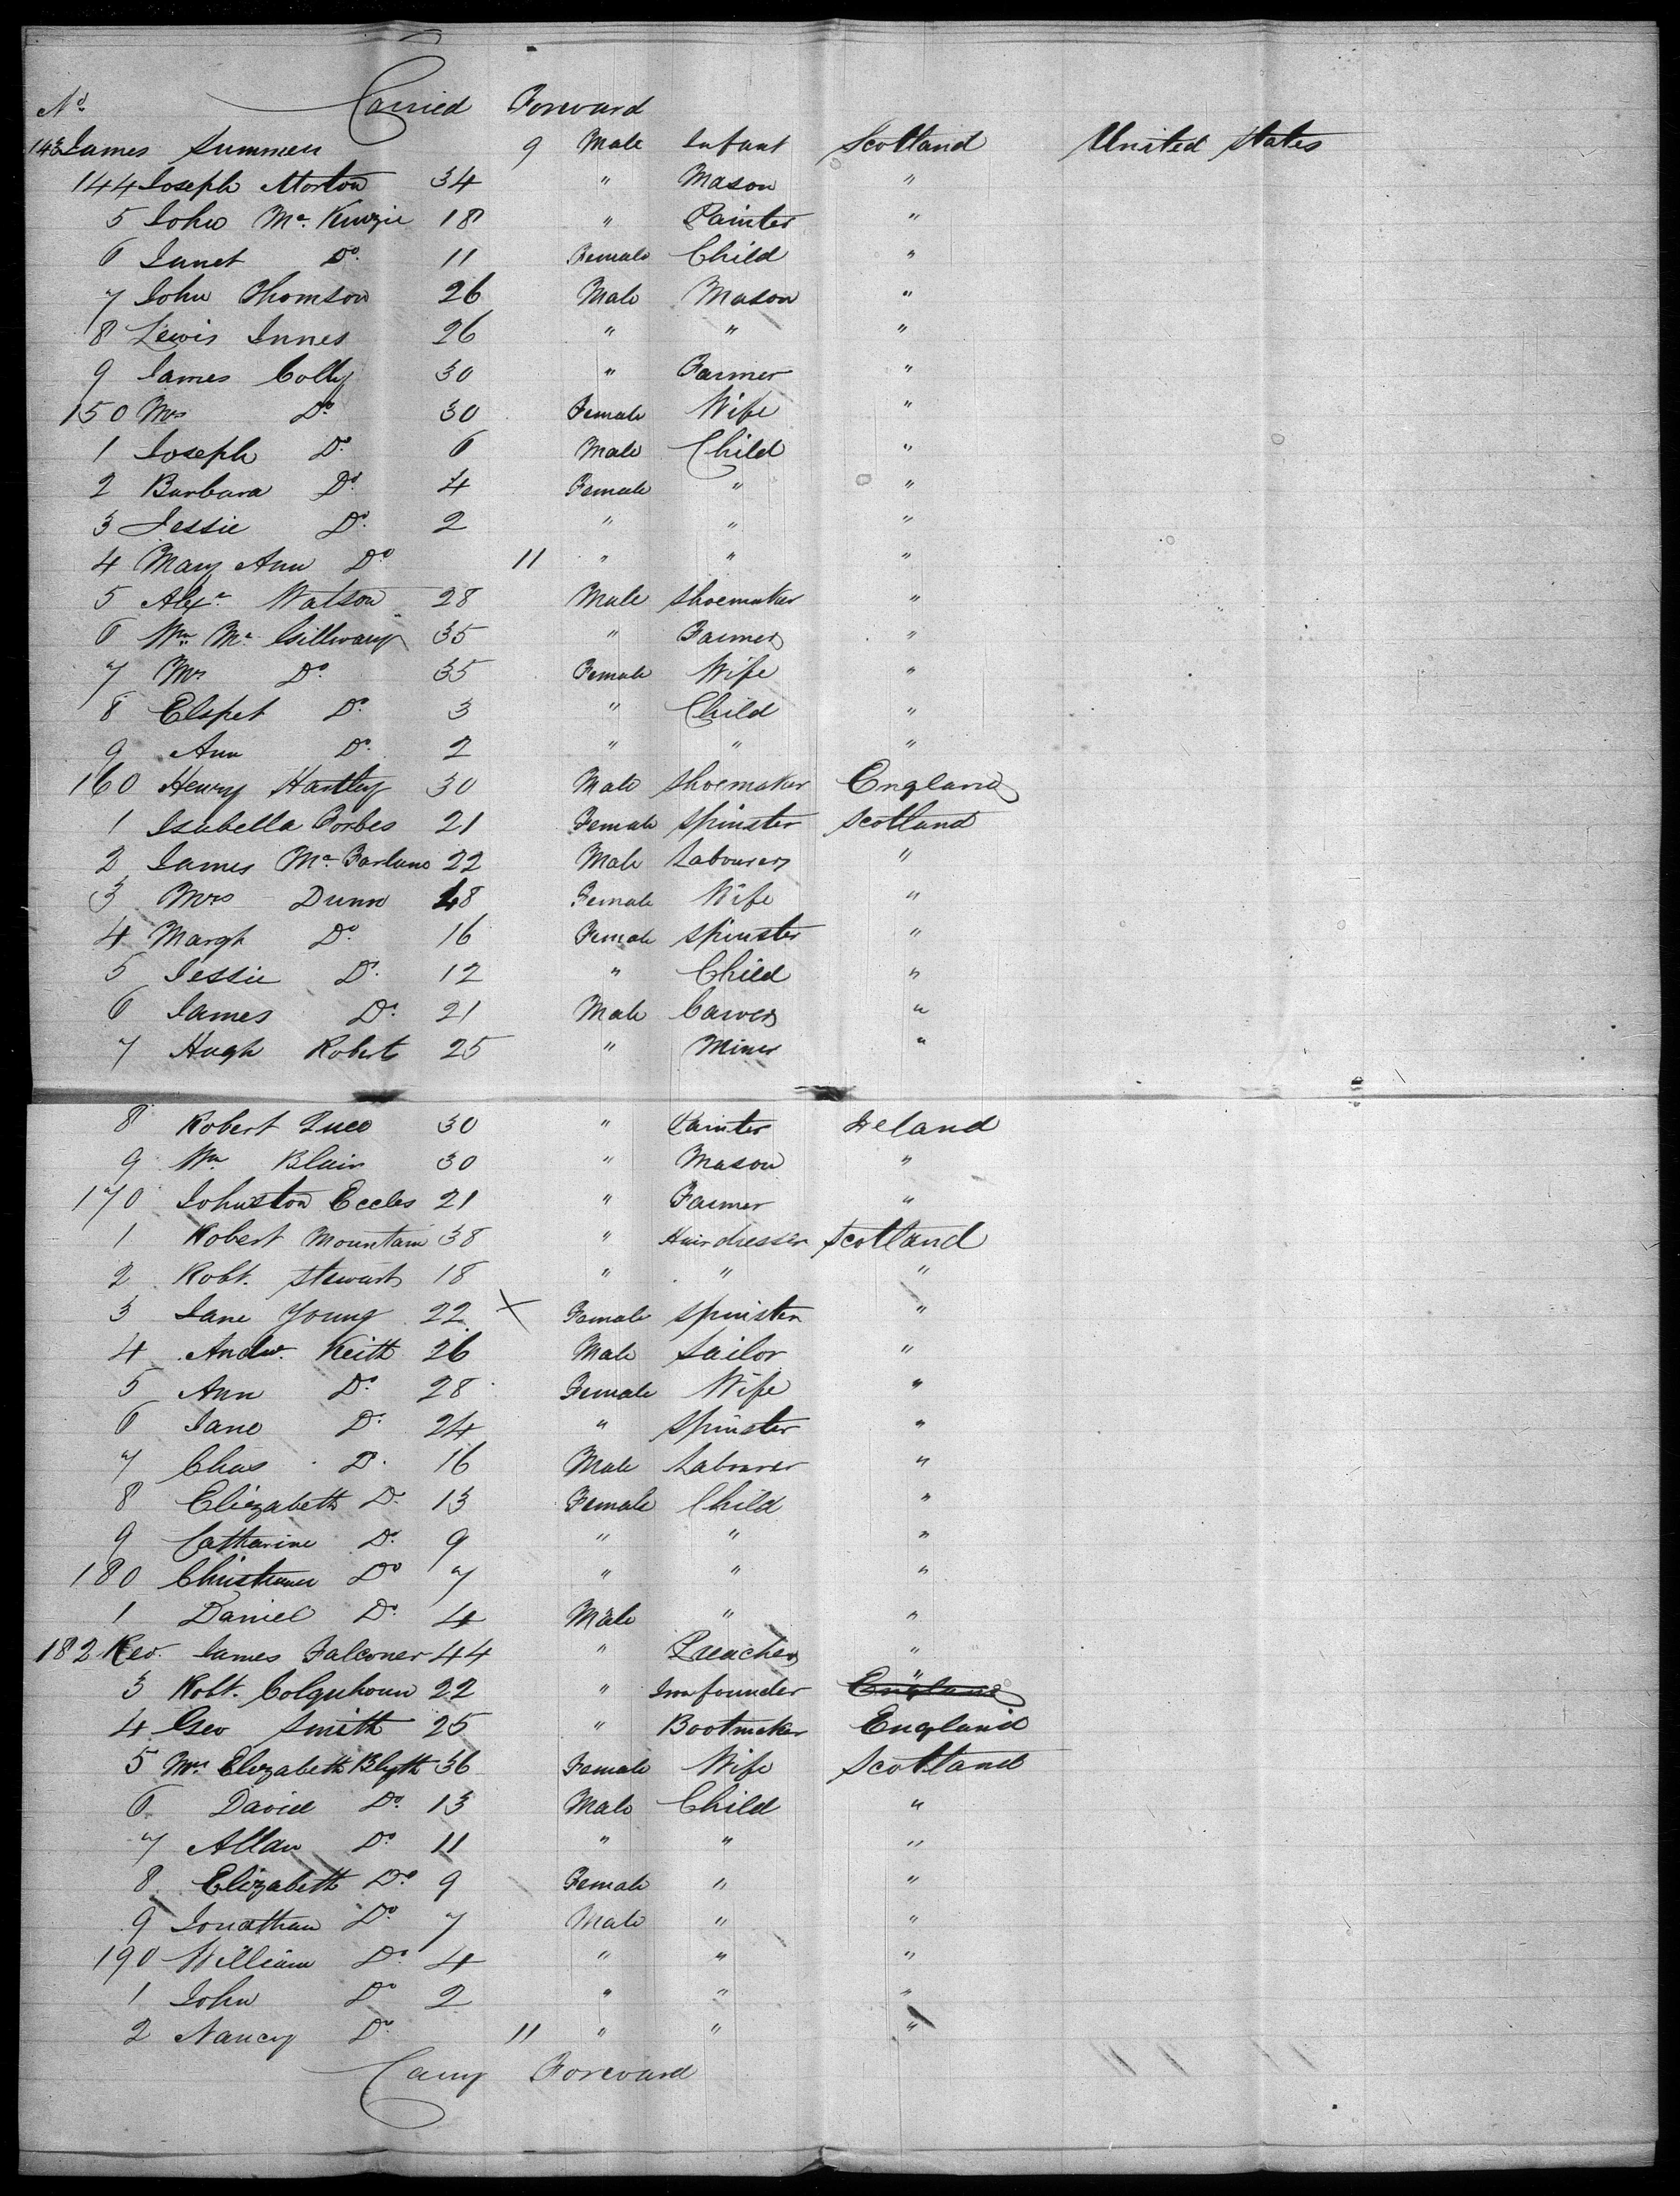 No. Carried Forward
143 James Summers 9 Male Infant Scotland United States
144 Joseph Morton 34 " Mason "
5 John Mc. Kenzie 18 " Painter "
6 Janet Do. 11 Female Child "
7 John Thomson 26 Male Mason "
8 Lewis Innes 26 " " "
9 James Colly 30 " Farmer "
150 Mrs Do. 30 Female Wife "
1 Joseph Do. 6 Male Child "
2 Barbara Do. 4 Female " "
3 Jessie Do. 2 " " "
4 Mary Ann Do 11 " " "
5 Alexr. Watson 28 Male Shoemaker "
6 Wm. Mc. 35 " Farmer "
7 Mrs Do. 35 Female Wife "
8 Elspet Do. 3 " Child "
9 Ann Do. 2 " " "
160 Henry Hartley 30 Male Shoemaker England
1 Isabella Forbes 21 Female Spinster Scotland
2 James Mc. Farlane 22 Male Labourer "
3 Mrs Dunn 48 Female Wife "
4 Margt Do. 16 Female Spinster "
5 Jessie Do. 12 " Child "
6 James Do. 21 Male Carver "
7 Hugh Roberts 25 " Miner "
8 Robert 30 " Painter Ireland
9 Wm. Blair 30 " Mason "
170 Johnston Eccles 21 " Farmer "
1 Robert Mountain 38 " Hairdresser Scotland
2 Robt. Stewart 18 " " "
3 Jane Young 22 X Female Spinster "
4 Andw. Keith 26 Male Sailor "
5 Ann Do. 28 Female Wife "
6 Jane Do. 24 " Spinster "
7 Chas Do. 16 Male Labourer "
8 Elizabeth Do. 13 Female Child "
9 Catharine Do. 9 " " "
180 Do 7 " " "
1 Daniel Do. 4 Male " "
182 Rev. James Falconer 44 " Preacher "
3 Robt. Colquhoun 22 " Ironfounder " England
4 Geo Smith 25 " Bootmaker England
5 Mrs Elizabeth Blyth 36 Female Wife Scotland
6 David Do. 13 Male Child "
7 Allan Do 11 " " "
8 Elizabeth Do. 9 Female " "
9 Jonathan Do. 7 Male " "
190 William Do. 4 " " "
1 John Do 2 " " "
2 Nancy Do. 11 " " "
Carry Forward